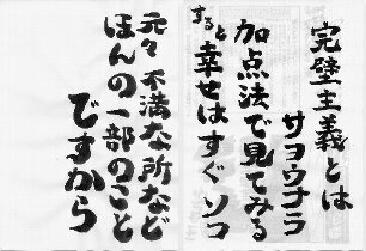 完璧主義とは
サヨウナラ
加点法で見てみる
すると幸せはすぐソコ
元々不満な所など
ほんの一部のこと
ですから